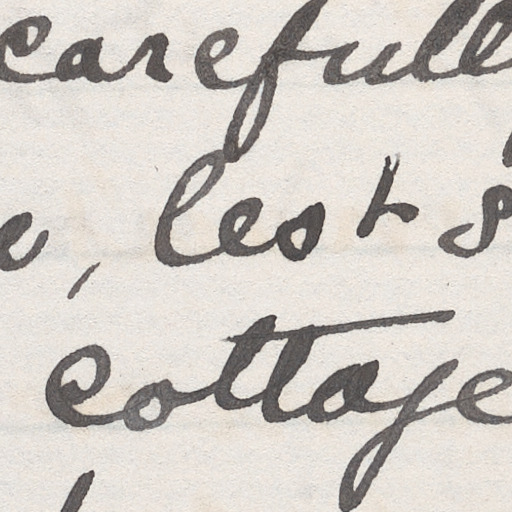 carefull
e, lest s
cottage